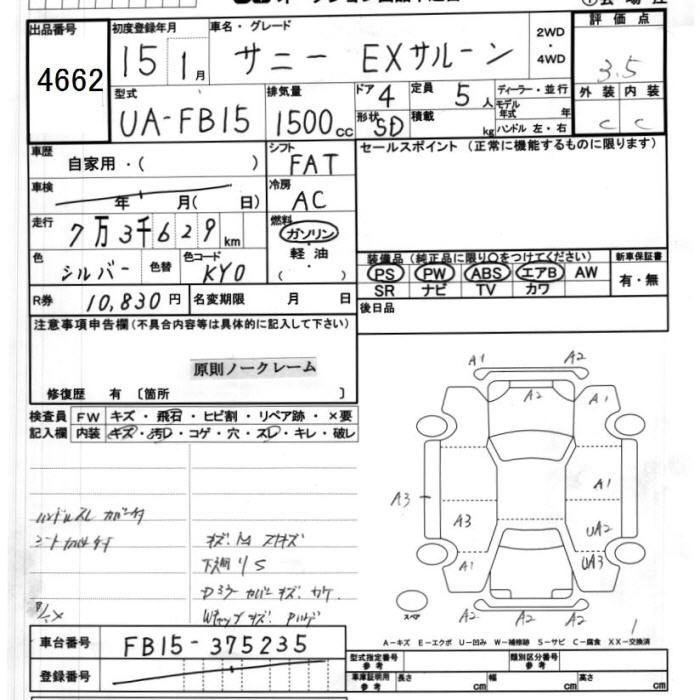 出品番号 初度登録年月 車名・グレード 2WD・4WD 評価点
4662 15 1月 サニー EXサルーン 3.5
型式 排気量 ドア 4 定員 5人 ディーラー・並行 外装 内装
UA-FB15 1500cc 形状 SD 積載 kg モデル年式 年 C C
ハンドル 左・右
車歴 自家用・( ) シフト FAT セールスポイント (正常に機能するものに限ります)
車検 年 月( 日) 冷房 AC
走行 7万3千629km 燃料 ガソリン
軽油
( )
色 シルバー 色替 色コード KY0
装備品 (純正品に限り○をつけてください) 新車保証書
PS PW ABS エアB AW 有・無
SR ナビ TV カワ
R券 10,830円 名変期限 月 日 後日品
注意事項申告欄(不具合内容等は具体的に記入して下さい)
原則ノークレーム
修復歴 有 〔箇所 〕
検査員 FW キズ・飛石・ヒビ割・リペア跡・×要
記入欄 内装 キズ・汚れ・コゲ・穴・スレ・キレ・破レ
A1 A2
A2 A1
A3 A1
A3 UA2
A1 UA3
スペア A2 A2 A2
ハンドルスレ カバー付
シートカバー付
下廻りS
A-キズ E-エクボ U-凹み W-補修跡 S-サビ C-腐食 XX-交換済
車台番号 FB15-375235
登録番号
型式指定番号 参考 類別区分番号 参考
車庫証明用 参考 長さ cm 幅 cm 高さ cm